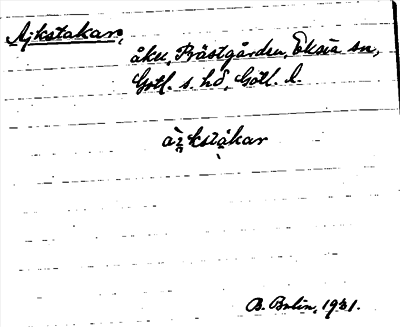 Ajkstakar,
åker, Prästgården, Eksta sn,
Gotl. s. hd, Gotl. l.
ài̯kstàkar
B. Bolin, 1931.